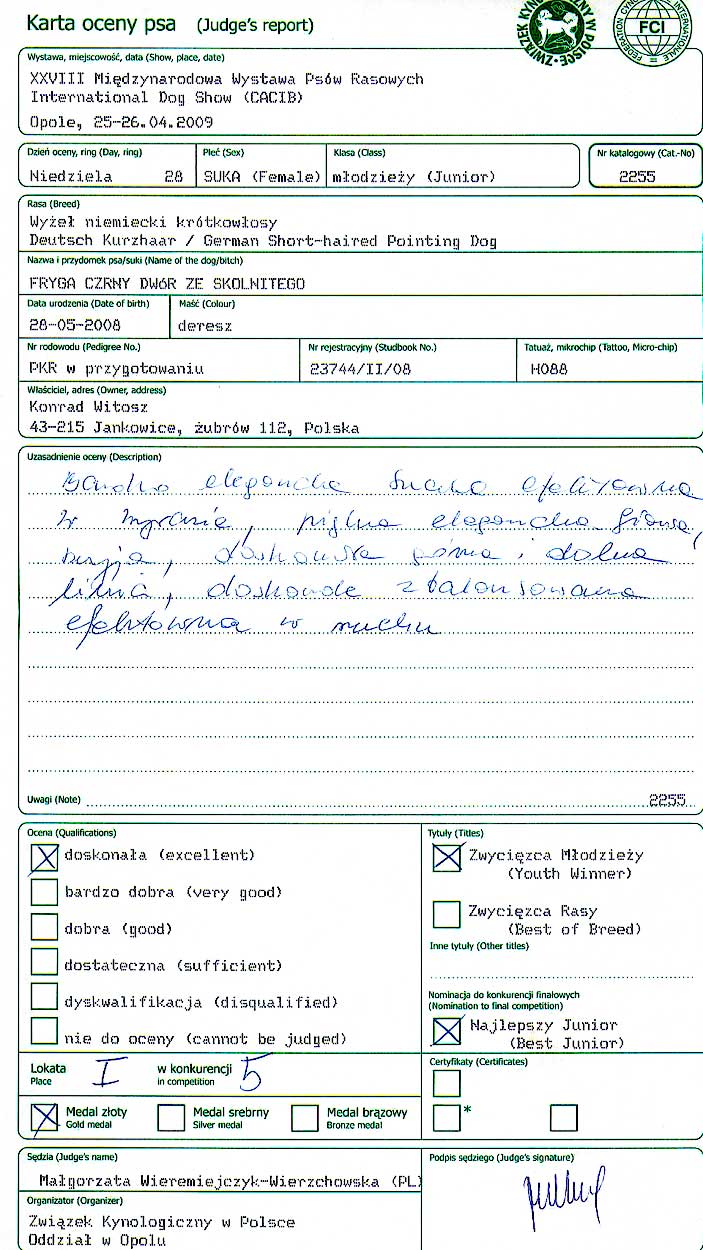 Karta oceny psa (Judge's report)
ZWIĄZEK KYNOLOGICZNY W POLSCE
FCI
Wystawa, miejscowość, data (Show, place, date)
XXVIII Międzynarodowa Wystawa Psów Rasowych
International Dog Show (CACIB)
Opole, 25-26.04.2009
Dzień oceny, ring (Day, ring) Płeć (Sex) Klasa (Class) Nr katalogowy (Cat.-No)
Niedziela 28 SUKA (Female) młodzieży (Junior) 2255
Rasa (Breed)
Wyżeł niemiecki krótkowłosy
Deutsch Kurzhaar / German Short-haired Pointing Dog
Nazwa i przydomek psa/suki (Name of the dog/bitch)
FRYGA CZRNY DWóR ZE SKOLNITEGO
Data urodzenia (Date of birth) Maść (Colour)
28-05-2008 deresz
Nr rodowodu (Pedigree No.) Nr rejestracyjny (Studbook No.) Tatuaż, mikrochip (Tattoo, Micro-chip)
PKR w przygotowaniu 23744/II/08 H088
Właściciel, adres (Owner, address)
Konrad Witosz
43-215 Jankowice, żubrów 112, Polska
Uzasadnienie oceny (Description)
Bardzo elegancka suka efektowna
w wyrazie, piękna elegancka głowa,
szyja, doskonała górna i dolna
linia, doskonale zbalansowana
efektowna w ruchu
Uwagi (Note) 2255
Ocena (Qualifications) Tytuły (Titles)
doskonała (excellent) Zwycięzca Młodzieży
(Youth Winner)
bardzo dobra (very good)
dobra (good) Zwycięzca Rasy
(Best of Breed)
Inne tytuły (Other titles)
dostateczna (sufficient)
dyskwalifikacja (disqualified) Nominacja do konkurencji finałowych
(Nomination to final competition)
nie do oceny (cannot be judged) Najlepszy Junior
(Best Junior)
Lokata I w konkurencji 5 Certyfikaty (Certificates)
Place in competition
Medal złoty Medal srebrny Medal brązowy *
Gold medal Silver medal Bronze medal
Sędzia (Judge's name) Podpis sędziego (Judge's signature)
Małgorzata Wieremiejczyk-Wierzchowska (PL)
Organizator (Organizer)
Związek Kynologiczny w Polsce
Oddział w Opolu